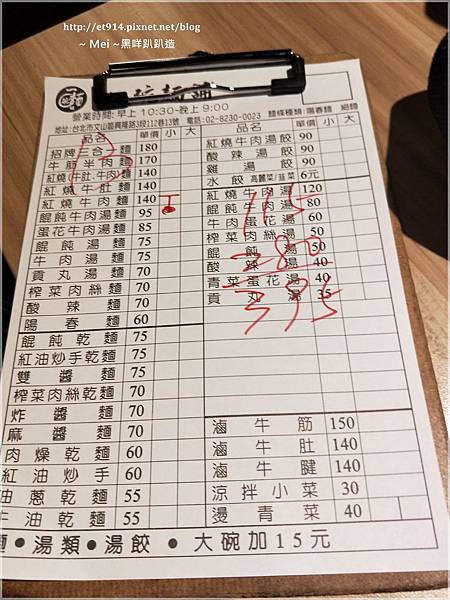 http://et914.pixnet.net/blog
~ Mei ~黑咩趴趴造
麵舖
營業時間:早上10:30-晚上9:00
地址:台北市文山區興隆路3段112巷13號 電話:02-8230-0023 麵條種類:陽春麵 細麵
品名 單價 小 大
招牌三合一麵 180
牛筋半肉麵 170
紅燒牛肚.牛肉麵 140
紅燒牛肚麵 140
紅燒牛肉麵 140
餛飩牛肉湯麵 95
蛋花牛肉湯麵 85
餛飩湯麵 75
牛肉湯麵 75
貢丸湯麵 70
榨菜肉絲麵 70
酸辣麵 70
陽春麵 60
餛飩乾麵 75
紅油炒手乾麵 75
雙醬麵 75
榨菜肉絲乾麵 70
炸醬麵 70
麻醬麵 70
肉燥乾麵 60
紅油炒手 60
油蔥乾麵 55
牛油乾麵 55
品名 單價 小 大
紅燒牛肉湯餃 90
酸辣湯餃 90
雞湯餃 90
水餃 高麗菜/韭菜 6元
紅燒牛肉湯 120
餛飩牛肉湯 80
牛肉蛋花湯 60
榨菜肉絲湯 50
餛飩湯 50
酸辣湯 40
青菜蛋花湯 40
貢丸湯 35
115
280
395
滷牛筋 150
滷牛肚 140
滷牛腱 140
涼拌小菜 30
燙青菜 40
麵●湯類●湯餃●大碗加15元